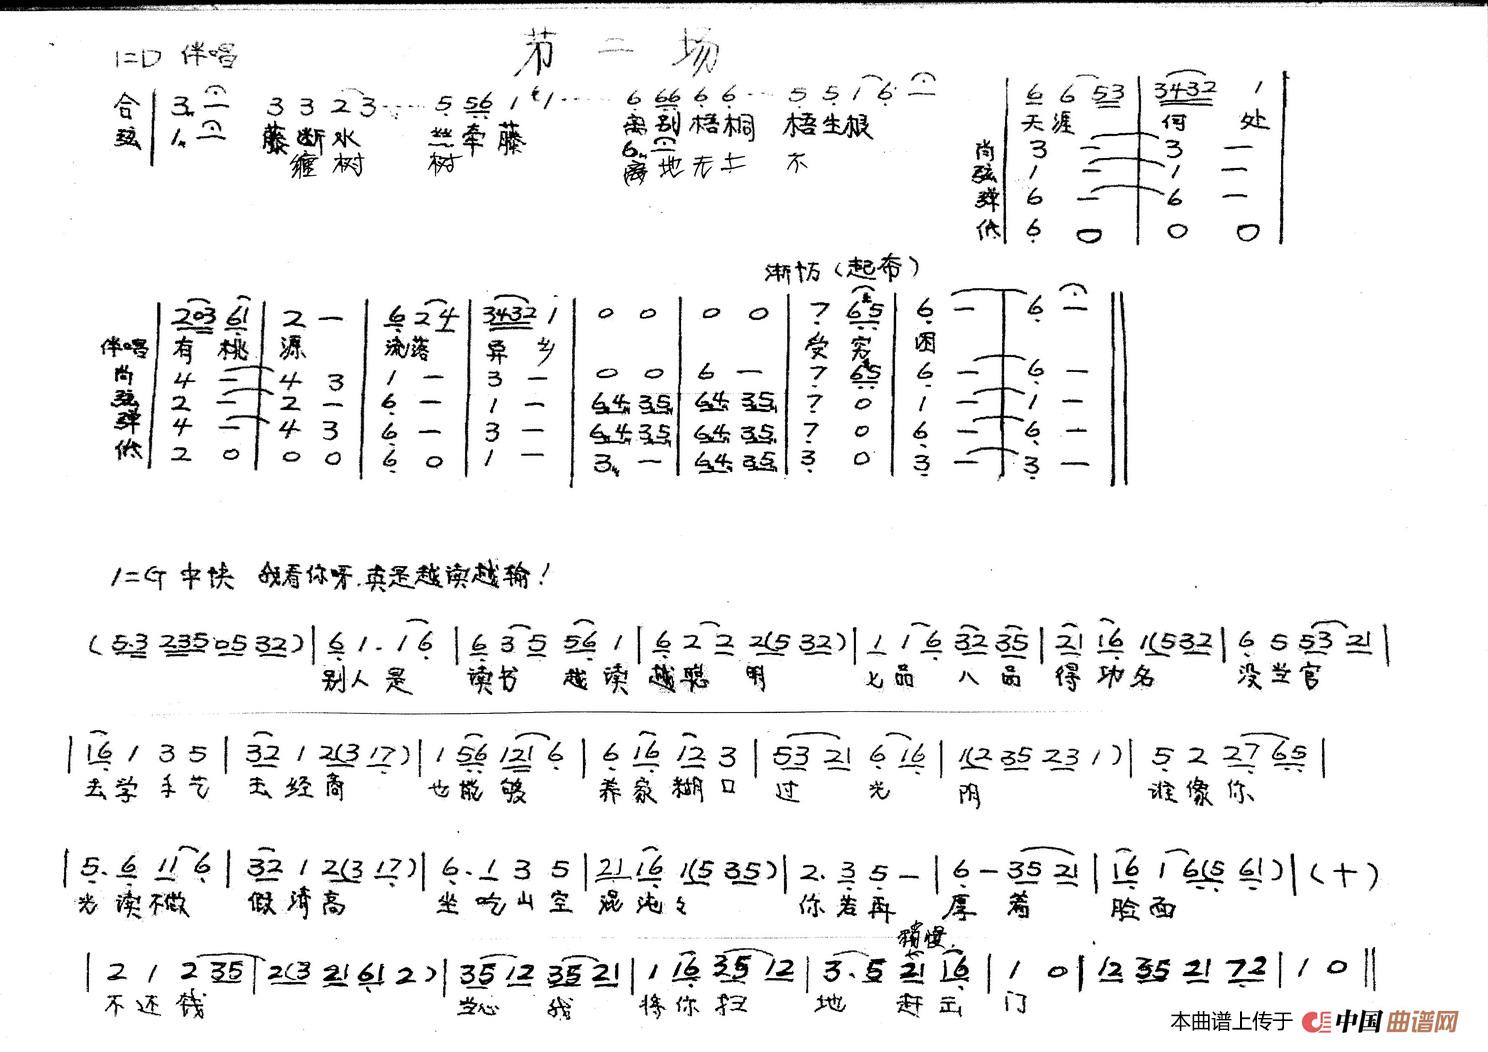 第二场
1=D 伴唱
合 3 - 3 3 2 3 ···· 5 56 1 1 ···· 6 66 6 6 ··· 5 5 1 6 - 6 6 53 3432 1
弦 1 - 藤断水 丝牵藤 离别梧桐 梧生根 天涯何处
缠树 树 6 -
离地无土 不
尚 3 - 3 -
弦 1 - 1 -
弹 6 - 6 -
低 6 0 0 0
渐切(起布)
203 61 2 - 6 24 3432 1 0 0 0 0 7 65 6 - 6 -
伴唱 有桃源 流落异乡 受穷困
尚 4 - 4 3 1 - 3 - 0 0 6 - 7 65 6 - 6 -
弦 2 - 2 - 6 - 1 - 64 35 64 35 7 0 1 - 1 -
弹 4 - 4 3 6 - 3 - 64 35 64 35 7 0 6 - 6 -
低 2 0 0 0 6 0 1 - 3 - 64 35 3 0 3 - 3 -
1=G 中快 我看你呀.真是越读越输!
(5·3 235 05 32) | 6 1· 16 | 6 35 56 1 | 6 2 2 2(5 32) | 1 16 32 35 | 21 16 1(532 | 6 5 53 21 |
别人是 读书 越读越聪明 七品八品得功名 没当官
| 16 1 3 5 | 32 1 2(3 17) | 1 56 121 6 | 6 16 12 3 | 53 21 6 16 | 1(2 35 23 1) | 5 2 27 65 |
去学手艺 去经商 也能够 养家糊口 过光阴 谁像你
| 5· 6 11 6 | 32 1 2(3 17) | 6· 1 3 5 | 21 16 1(5 35) | 2· 3 5 - | 6 - 35 21 | 16 1 6(5 61) | (十)
光读不做 假清高 坐吃山空 混沌々 你若再厚着脸面
稍慢.
| 2 1 2 35 | 2(3 21 61 2) | 35 12 35 21 | 1 16 35 12 | 3· 5 21 16 | 1 0 | 12 35 21 72 | 1 0 ‖
不还钱 当心我 将你扫地赶出门
本曲谱上传于 中国曲谱网